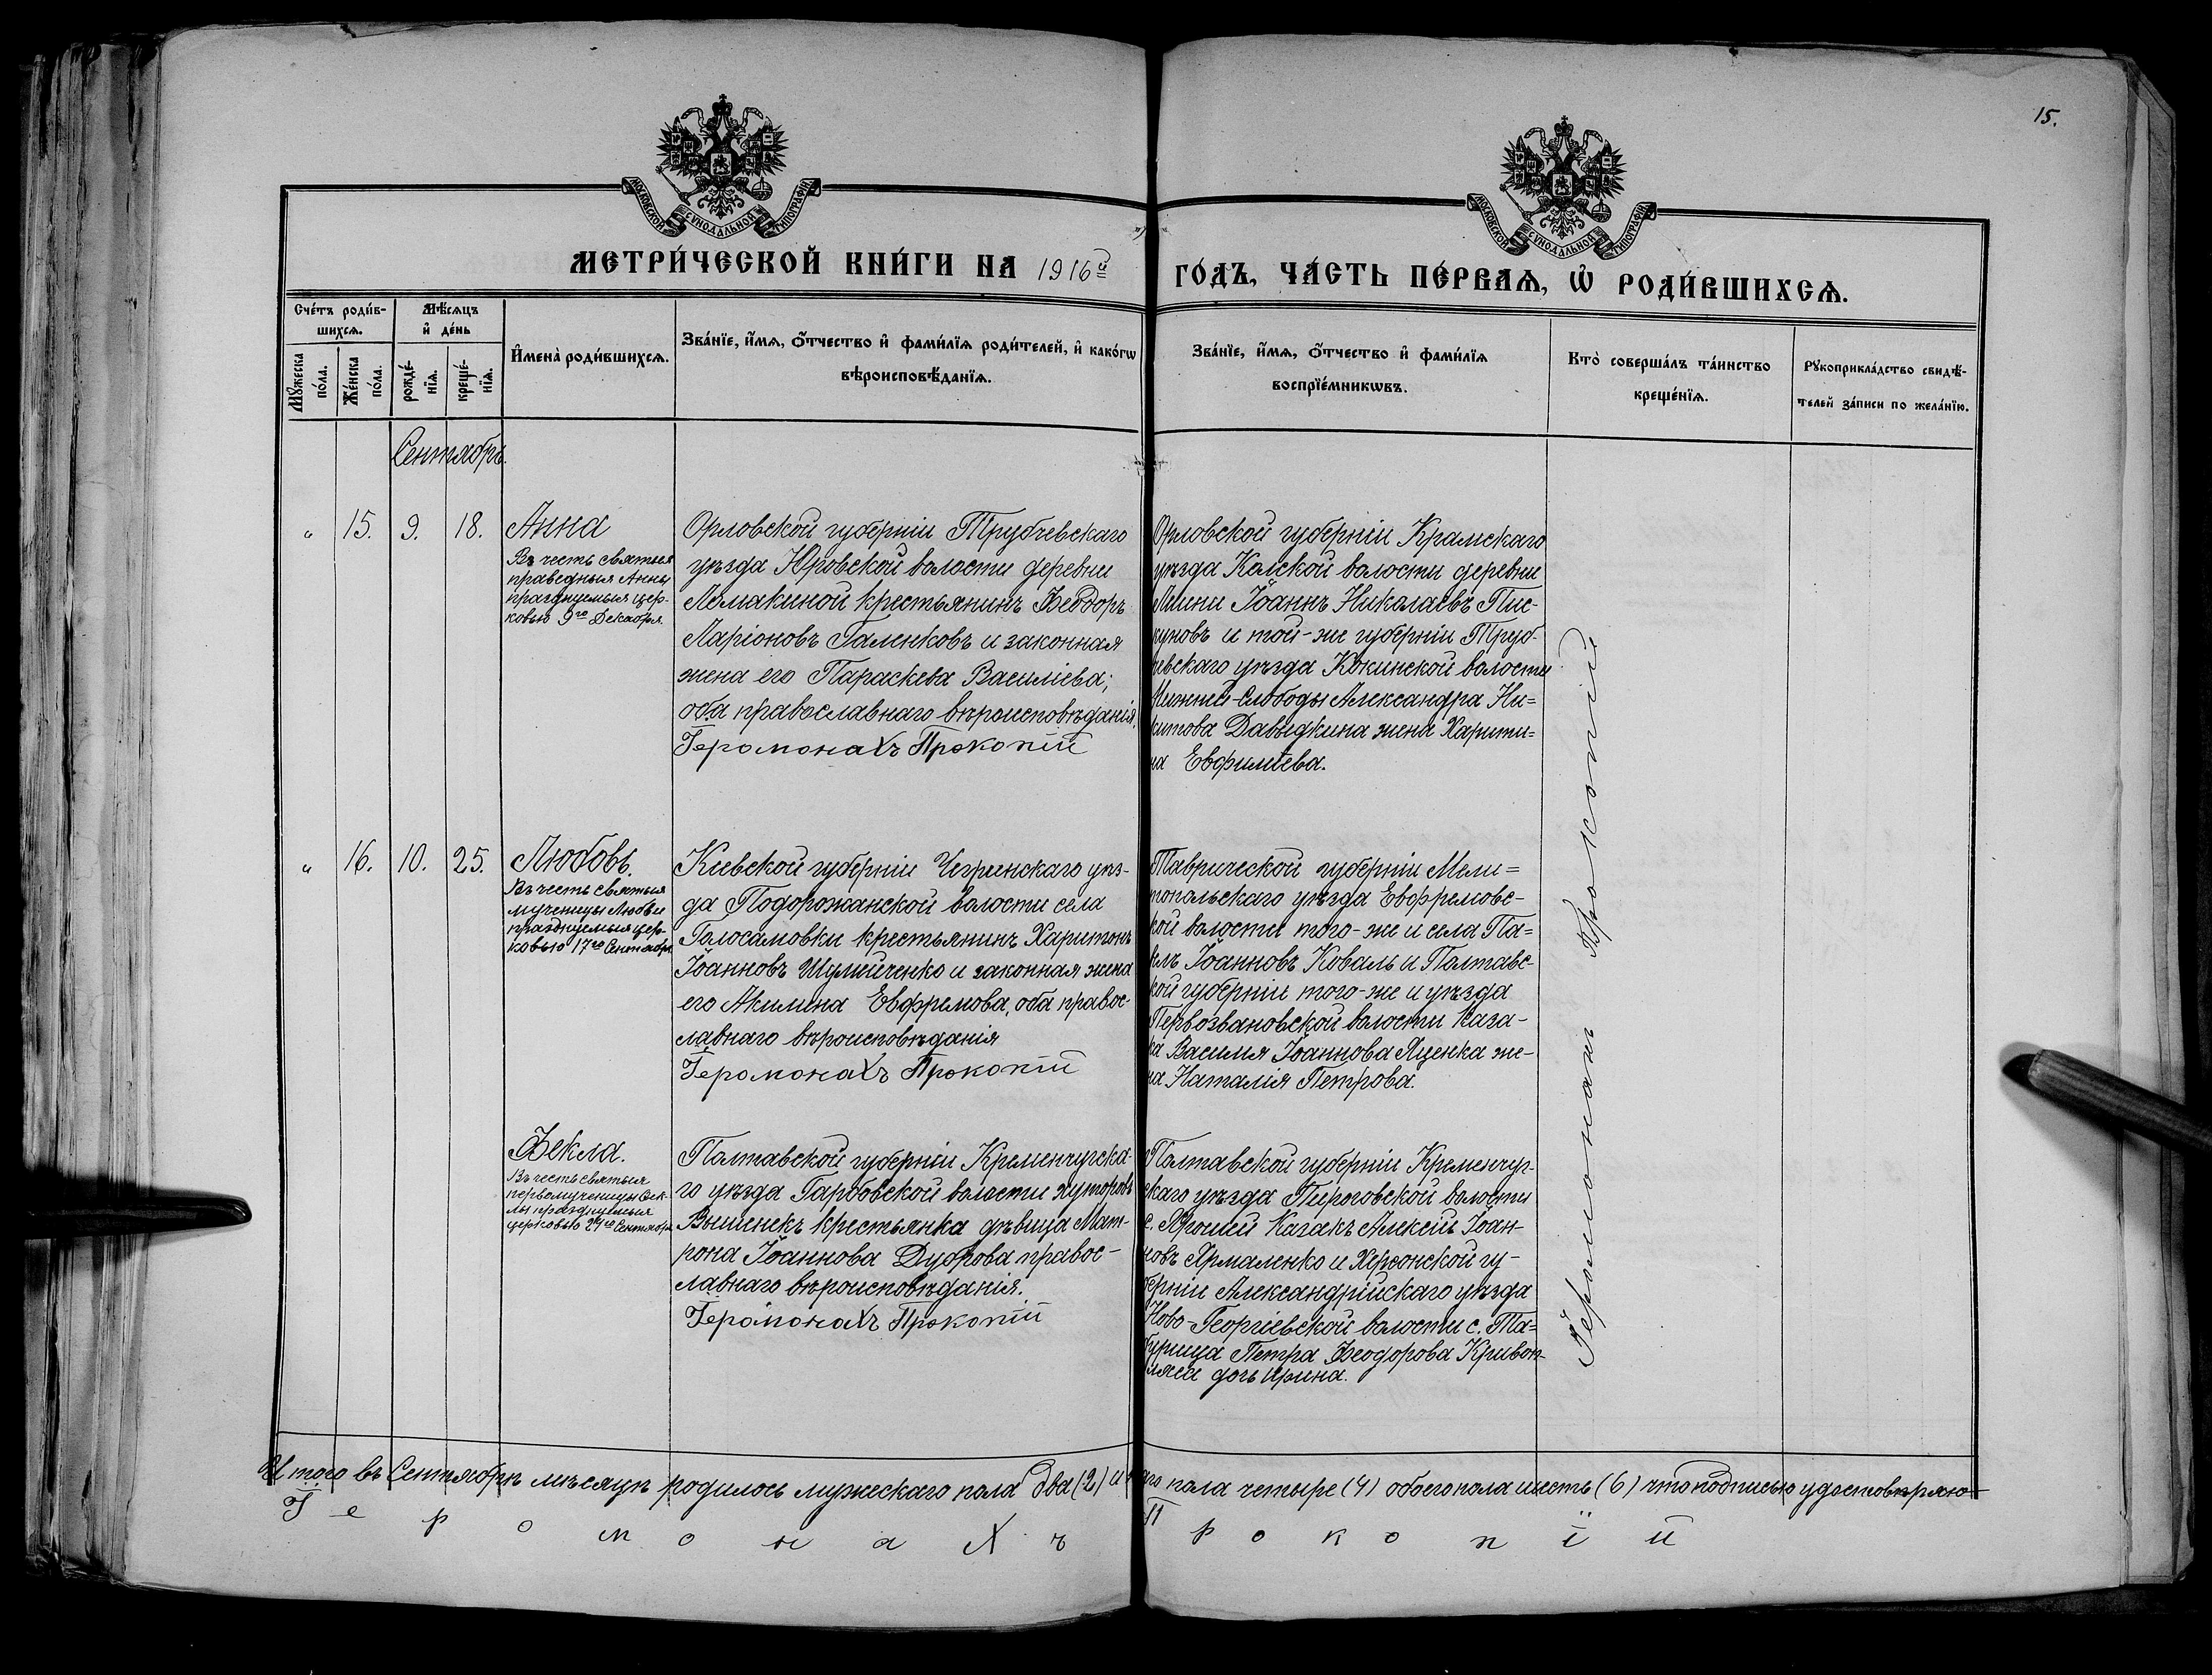 15.
МОСКОВСКОЙ СѴНОДАЛЬНОЙ ТИПОГРАФІИ
МОСКОВСКОЙ СѴНОДАЛЬНОЙ ТИПОГРАФІИ
МЕТРИ́ЧЕСКОЙ КНИ́ГИ НА 1916й ГО́ДЪ, ЧА́СТЬ ПЕ́РВАѦ, Ѽ РОДИ́ВШИХСѦ.
Сче́тъ роди́в-
шихсѧ.
Мѣ́сѧцъ
и҆ де́нь
Мꙋ́жеска
по́ла.
Же́нска
по́ла.
рожде́-
нїѧ.
креще́-
нїѧ.
И҆мена̀ роди́вшихсѧ.
Зва́нїе, и҆́мѧ, ѻ҆́тчество и҆ фами́лїѧ роди́телей, и҆ како́гѡ
вѣроисповѣ́данїѧ.
Зва́нїе, и҆́мѧ, ѻ҆́тчество и҆ фами́лїѧ
воспрїе́мникѡвъ.
Кто̀ соверша́лъ та́инство
креще́нїѧ.
Рꙋкоприкла́дство свидѣ́-
телей за́писи по жела́нїю.
Сентябрь.
" 15. 9. 18. Анна
Въ честь святыя
праведныя Анны
празднуемыя цер-
ковью 9го Декабря.
Орловской губерніи Трубчевскаго
уѣзда Юровской волости деревни
Ломакиной крестьянинъ Ѳеодоръ
Ларіоновъ Галенковъ и законная
жена его Параскева Василіева;
оба православнаго вѣроисповѣданія.
Іеромонахъ Прокопій
Орловской губерніи Крамскаго
уѣзда Колской волости деревни
Іоаннъ Николаевъ Пис-
куновъ и той-же губерніи Труб-
чевскаго уѣзда Кокинской волости
Нижней-Слободы Александра Ни=
китова Давыдкина жена Харити=
на Евфиміева.
" 16. 10. 25. Любовь.
Въ честь святыя
мученицы Любви
празднуемыя цер-
ковью 17го Сентября.
Кіевской губерніи Чегринскаго уѣз-
да Подорожанской волости села
Голосамовки крестьянинъ Харитонъ
Іоанновъ Шулейченко и законная жена
его Акилина Евфремова, оба правос-
лавнаго вѣроисповѣданія
Іеромонахъ Прокопій
Таврической губерніи Мели=
топольскаго уѣзда Евфремовс-
кой волости того-же и села Па=
велъ Іоанновъ Коваль и Полтавс-
кой губерніи того-же и уѣзда
Первозвановской волости каза-
ка Василія Іоаннова Яценка же-
на Наталія Петрова.
Ѳекла.
Въ честь святыя
первомученицы Ѳек-
лы празднуемыя
церковью 24го Сентября.
Полтавской губерніи Кременчугска-
го уѣзда Гарбовской волости хуторовъ
Вышенекъ крестьянка дѣвица Мат-
рона Іоаннова Дуброва правос-
лавнаго вѣроисповѣданія.
Іеромонахъ Прокопій
Полтавской губерніи Кременчуг-
скаго уѣзда Пироговской волости
с. Казакъ Алексѣй Іоан-
новъ Ярмаленко и Херсонской гу-
берніи Александрійскаго уѣзда
Ново-Георгіевской волости с. Та=
бурища Петра Ѳеодорова
дочь Ирина.
Іеромонахъ Прокопій
Итого въ Сентябрѣ мѣсяцѣ родилось мужескаго пола два (2) и пола четыре (4) обоего пола шесть (6) что подписью удостовѣряю
Іеромонахъ Прокопій